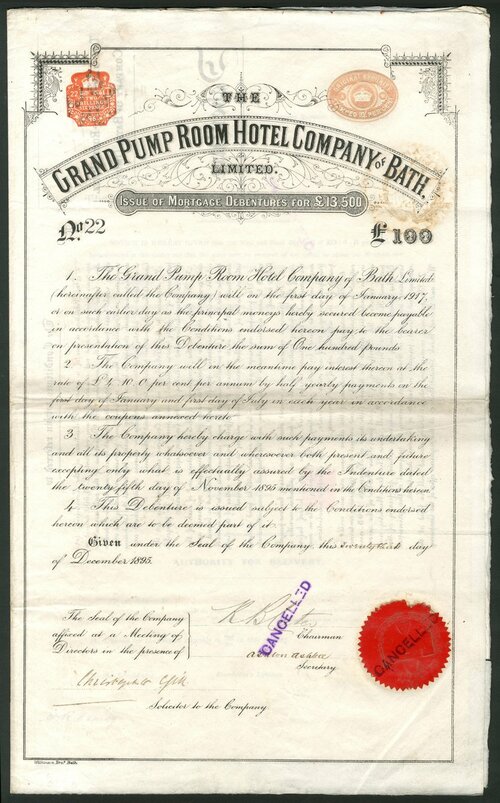 THE
GRAND PUMP ROOM HOTEL COMPANY of BATH,
LIMITED.
ISSUE OF MORTGAGE DEBENTURES FOR £13,500
No. 22
£100
1. The Grand Pump Room Hotel Company of Bath Limited
(hereinafter called the Company) will on the first day of January 1917,
or on such earlier day as the principal moneys hereby secured become payable
in accordance with the Conditions endorsed hereon pay to the bearer
on presentation of this Debenture the sum of One hundred Pounds.
2. The Company will in the meantime pay interest thereon at the
rate of £4. 10. 0 per cent per annum by half yearly payments on the
first day of January and first day of July in each year in accordance
with the coupons annexed hereto
3. The Company hereby charge with such payments its undertaking
and all its property whatsoever and wheresoever both present and future
excepting only what is effectually assured by the Indenture dated
the twenty fifth day of November 1895 mentioned in the Conditions hereon
4. This Debenture is issued subject to the Conditions endorsed
hereon which are to be deemed part of it.
Given under the Seal of the Company this day
of December 1895.
The Seal of the Company
affixed at a Meeting of
Directors in the presence of
Chairman
Secretary
Solicitor to the Company
CANCELLED
CANCELLED
Bros. Bath.